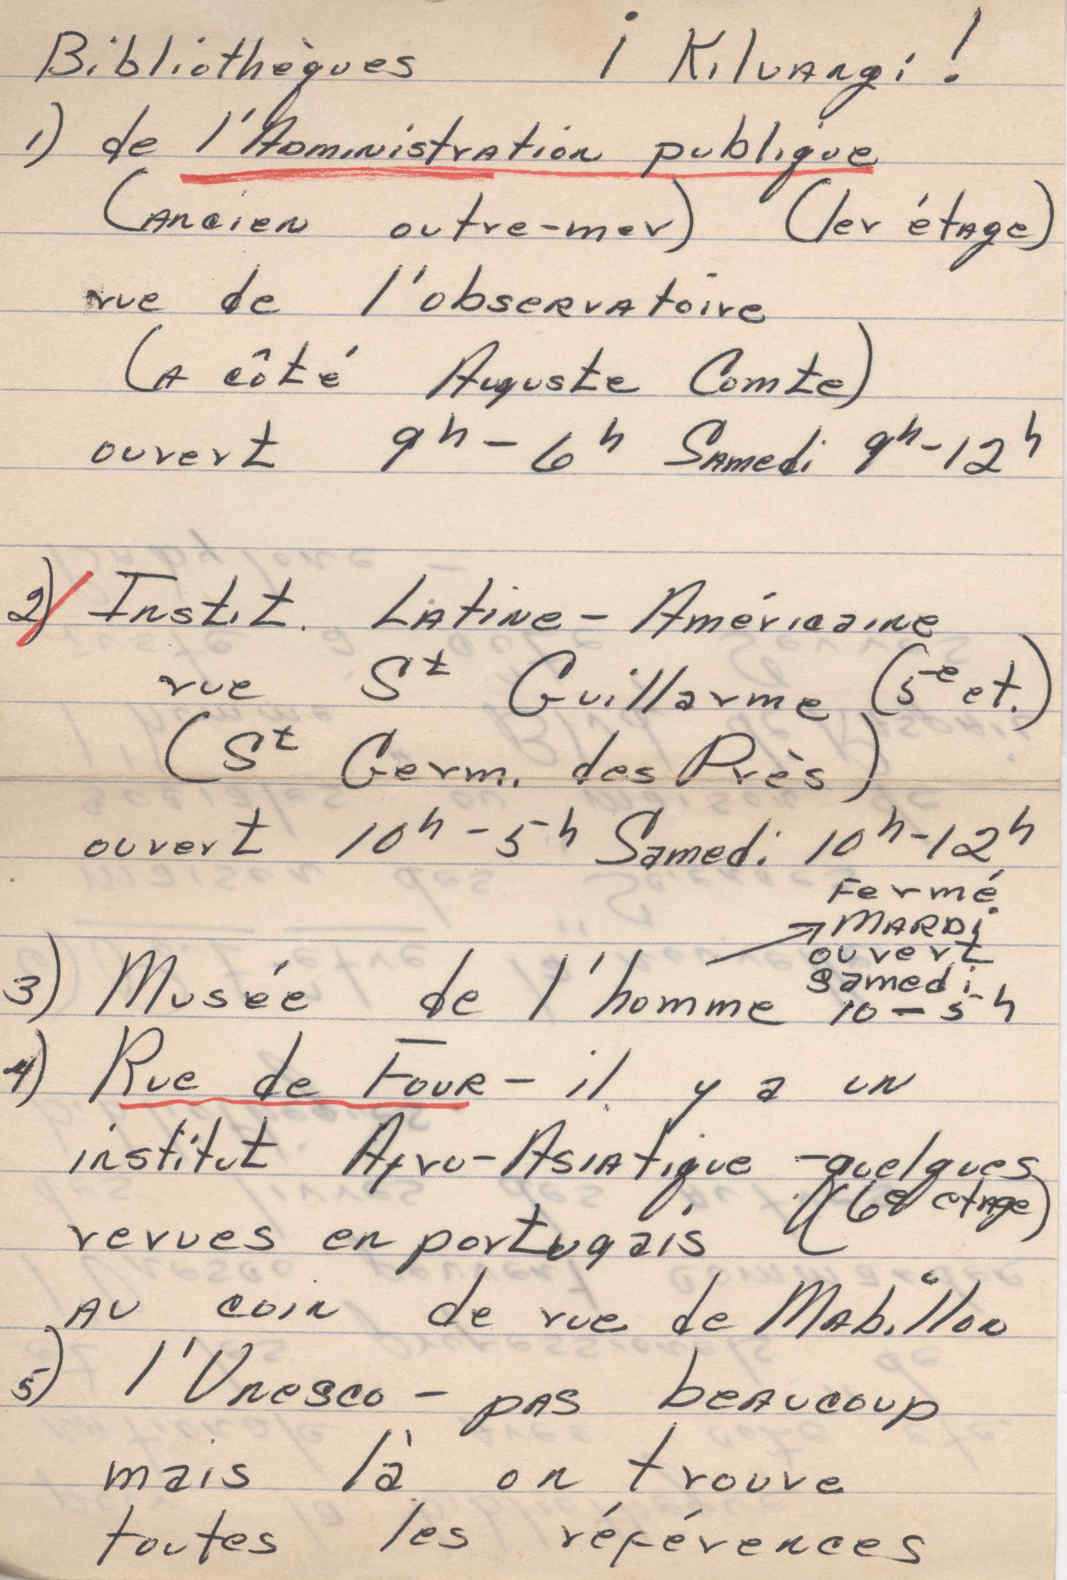 Bibliothèques ¡ Kiluangi!
1) de l'Administration publique
(Ancien outre-mer) (1er étage)
rue de l'observatoire
(A côté Auguste Comte)
ouvert 9h - 6h Samedi 9h-12h
2) Instit. Latine-Américaine
rue St Guillaume (5e et.)
(St Germ. des Près)
ouvert 10h - 5h Samedi 10h-12h
Fermé
MARDi
ouvert
samedi
10 - 5h
3) Musée de l'homme
4) Rue de Four - il y a un
institut Afro-Asiatique - quelques
revues en portugais (6e etage)
AU coin de rue de Mabillon
5) l'Unesco - pas beaucoup
mais là on trouve
toutes les références